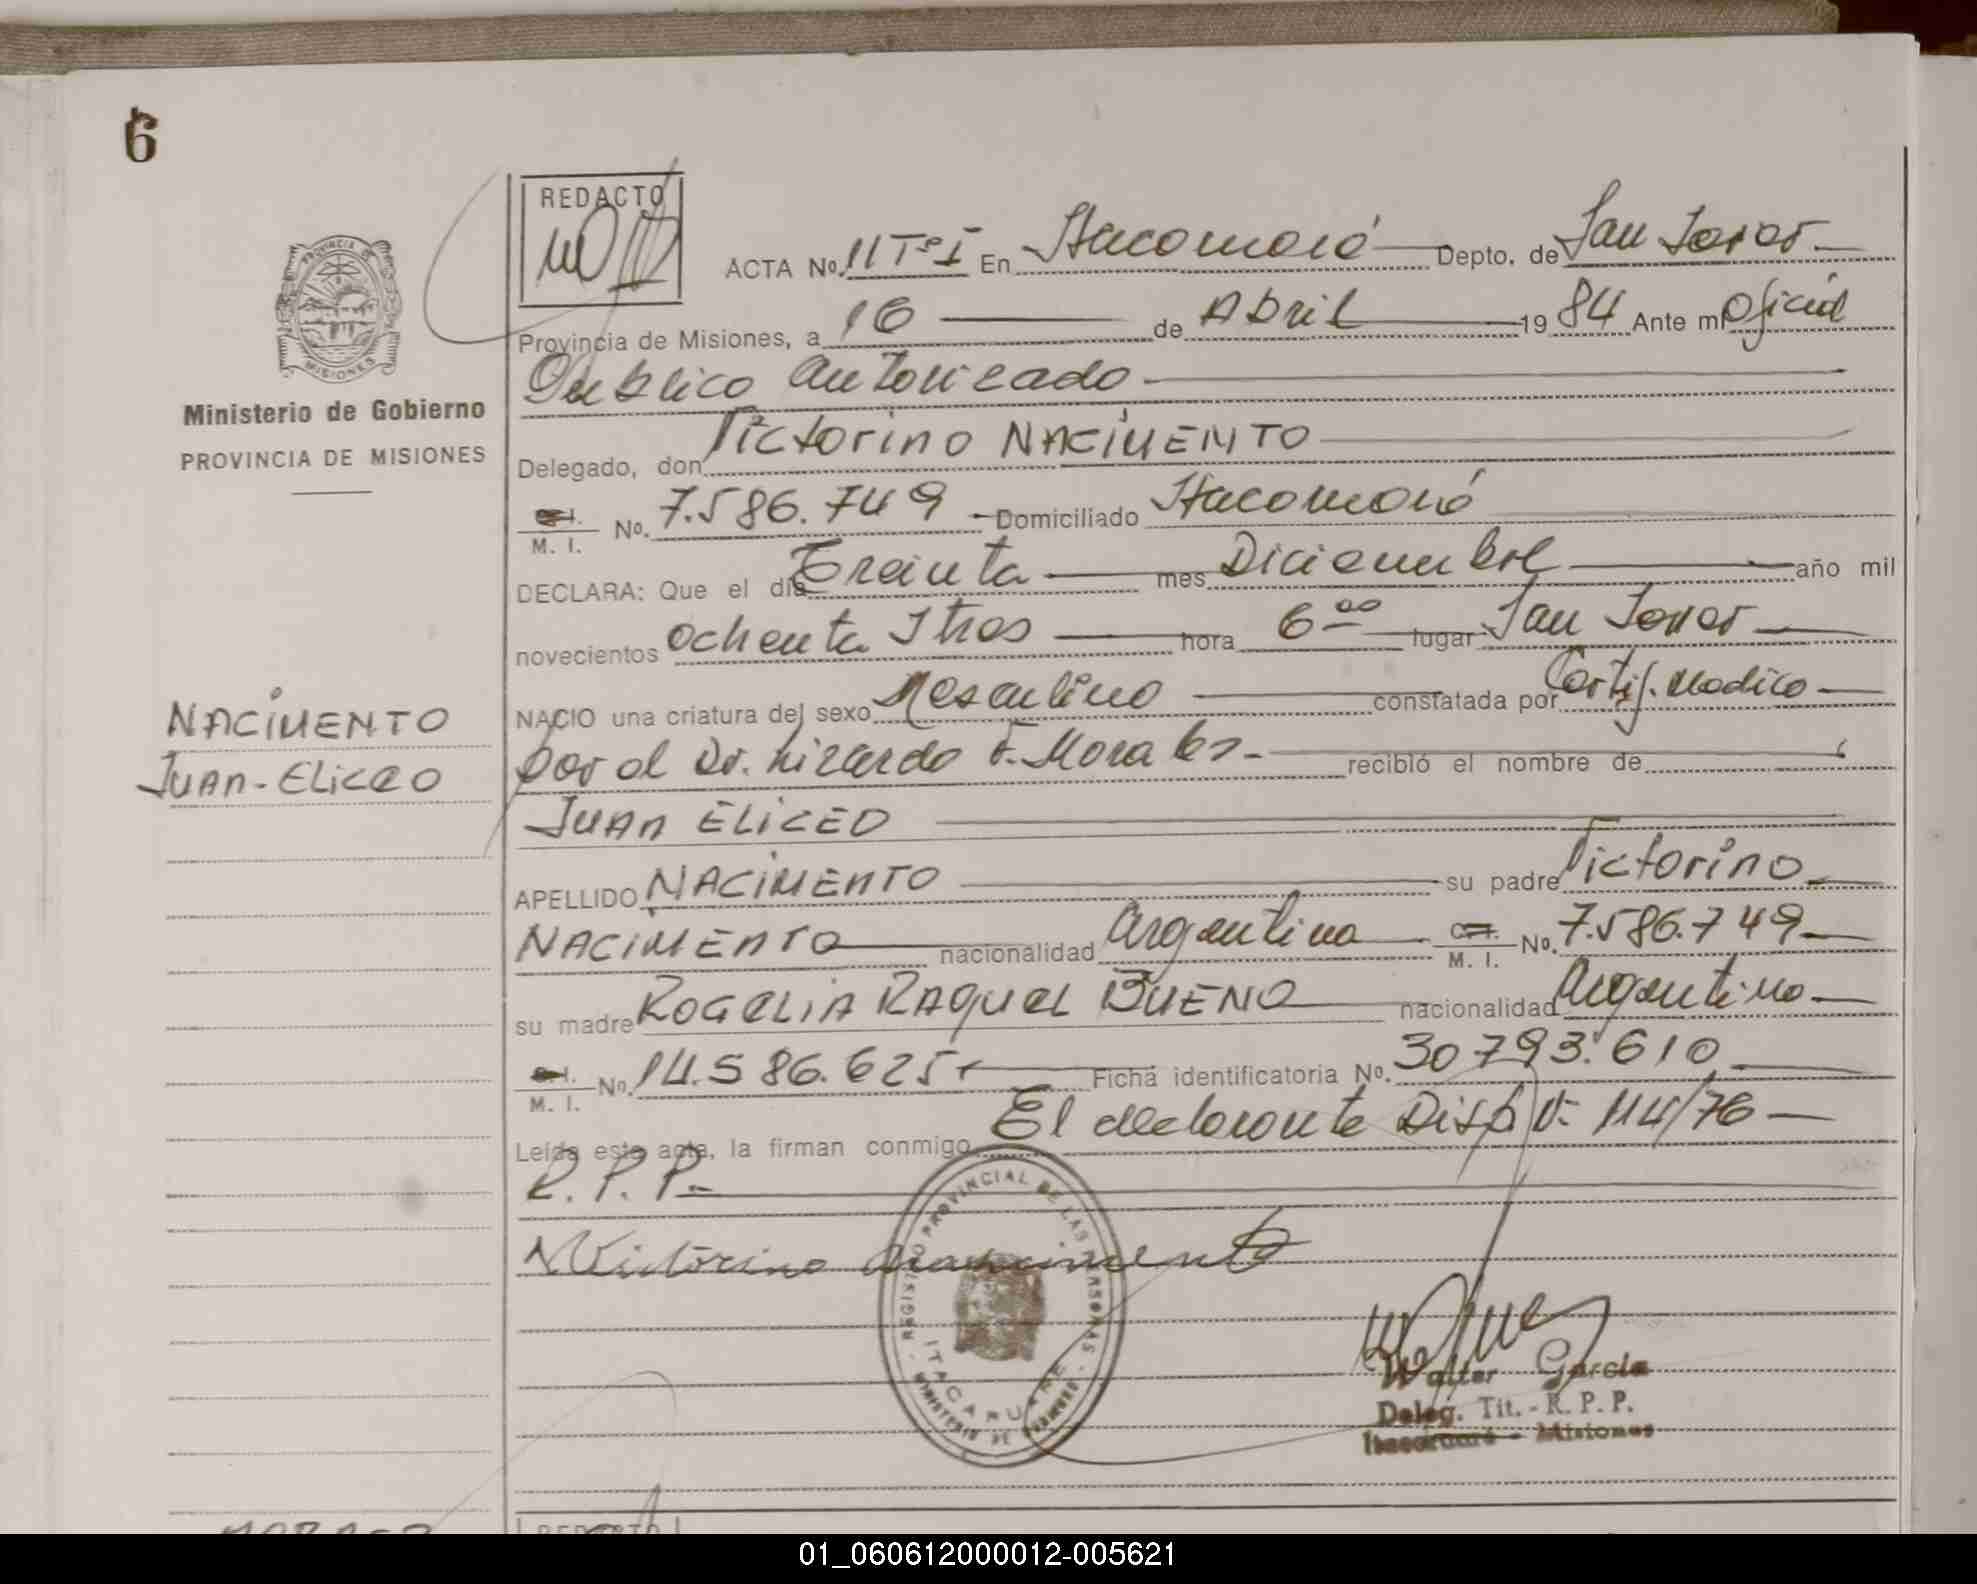 6
REDACTO
ACTA No. 11 Tº I En Itacaruaré Depto. de San Javier
Provincia de Misiones, a 16 de Abril 1984 Ante mi Oficial
Publico Autorizado
Delegado, don Victorino NACIMENTO
C. I.
M. I. No. 7.586.749 Domiciliado Itacaruaré
DECLARA: Que el día Treinta mes Diciembre año mil
novecientos ochenta y tres hora 6 00 lugar San Javier
NACIO una criatura del sexo Masculino constatada por Certif. Medico
por el Dr. Lizardo F. Morales.- recibió el nombre de
JUAN ELICEO
APELLIDO NACIMENTO su padre Victorino
NACIMENTO nacionalidad Argentina C. I.
M. I. No. 7.586.749
su madre ROGELIA RAQUEL BUENO nacionalidad Argentina
C. I.
M. I. No. 14.586.625 Ficha identificatoria No. 30793.610
Leída esta acta, la firman conmigo El declarante Disp. 114/76
R. P. P.
Victorino
Walter García
Deleg. Tit. - R. P. P.
Itacaruaré - Misiones
REGISTRO PROVINCIAL DE LAS PERSONAS
MINISTERIO DE GOBIERNO
ITACARUARE
PROVINCIA DE
MISIONES
Ministerio de Gobierno
PROVINCIA DE MISIONES
NACIMENTO
JUAN-ELICEO
REDACTO
01_060612000012-005621